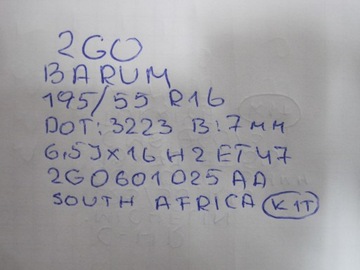 2GO
BARUM
195/55 R16
DOT:3223 B:7мм
6,5JX16 H2 ET47
2G0601025AA
SOUTH AFRICA K1T